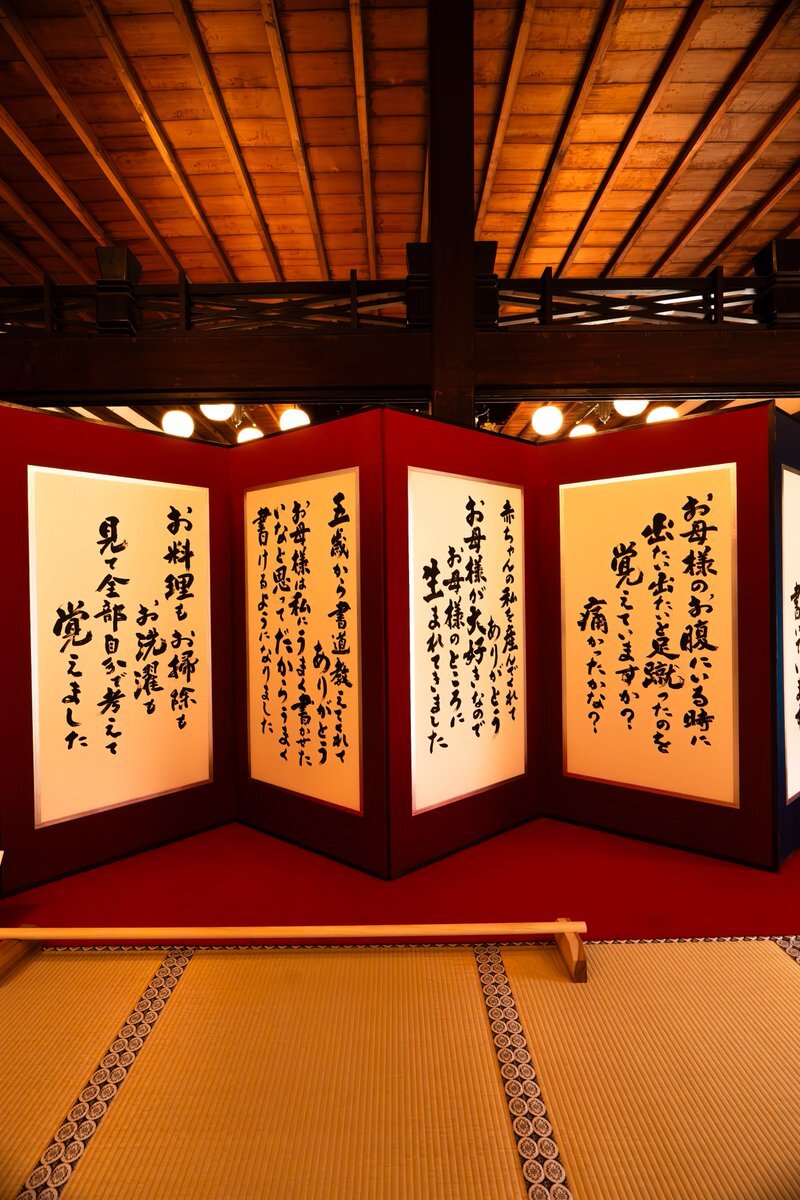 お母様のお腹にいる時に
出たい出たいと足蹴ったのを
覚えていますか？
痛かったかな？
赤ちゃんの私を産んでくれて
ありがとう
お母様が大好きなので
お母様のところに
生まれてきました
五歳から書道教えてくれて
ありがとう
お母様は私にうまく書かせた
いなと思ってだからうまく
書けるようになりました
お料理もお掃除も
お洗濯も
見て全部自分で考えて
覚えました